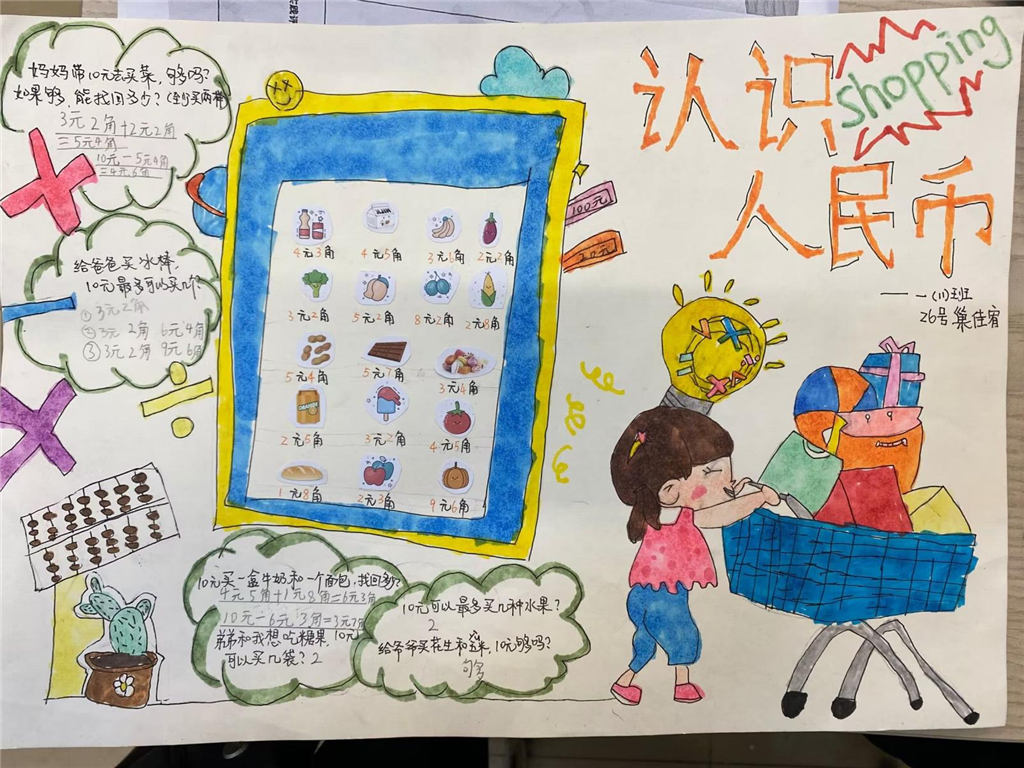 认识
shopping
人民币
——一(11)班
26号
妈妈带10元去买菜,够吗?
如果够,能找回多少?(至少买两样)
3元2角+2元2角
=5元4角
10元-5元4角
=4元6角
给爸爸买冰棒,
10元最多可以买几个?
①3元2角
②3元2角 6元4角
③3元2角 9元6角
100元
20元
4元3角 4元5角 3元6角 2元2角
3元2角 5元2角 8元2角 2元8角
5元4角 5元7角 3元4角
2元5角 3元2角 4元5角
1元8角 2元3角 9元6角
10元买一盒牛奶和一个面包,找回多少?
4元5角+1元8角=6元3角
10元-6元3角=3元7角
弟弟和我想吃糖果,10元
可以买几袋?2
10元可以最多买几种水果?
2
给爷爷买花生和玉米,10元够吗?
够